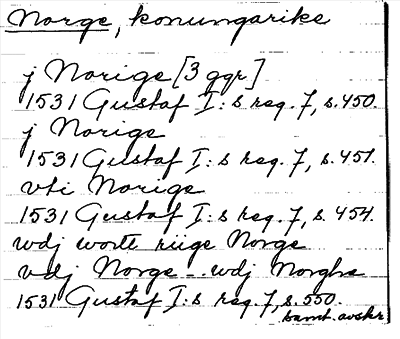 Norge, konungarike
j Norige [3 ggr]
1531 Gustaf I:s reg. 7, s. 450.
j Norige
1531 Gustaf I:s reg. 7, s. 451.
vti Norige
1531 Gustaf I:s reg. 7, s. 454.
wdj worte riige Norge
vdj Norge - . wdj Norghe
1531 Gustaf I:s reg. 7, s. 550.
samt. avskr